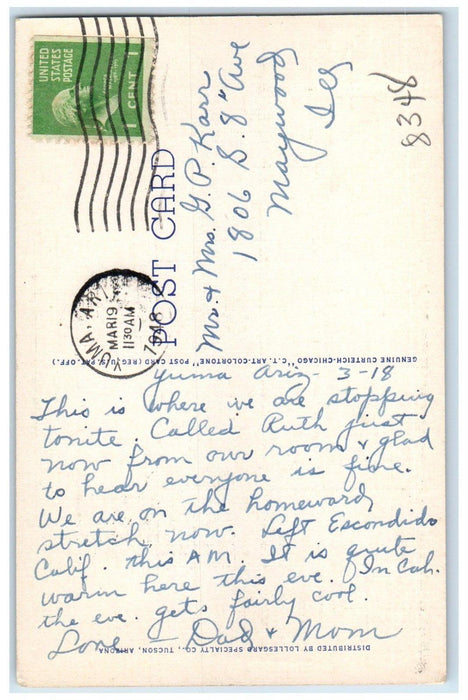 UNITED
STATES
POSTAGE
1 CENT 1
YUMA, ARIZ.
MAR 19
11 30 AM
1948
POST CARD
Mr. & Mrs. G. P. Karr
1806 S. 8" Ave
Maywood
Ill
8348
GENUINE CURTEICH-CHICAGO "C.T. ART-COLORTONE" POST CARD (REG. U.S. PAT. OFF.)
Yuma Ariz - 3-18
This is where we are stopping
tonite. Called Ruth just
now from our room & glad
to hear everyone is fine.
We are on the homeward
stretch now. Left Escondido
Calif. this AM. It is quite
warm here this eve. In Cal.
the eve. gets fairly cool.
Love - Dad & Mom
DISTRIBUTED BY LOLLESGARD SPECIALTY CO., TUCSON, ARIZONA